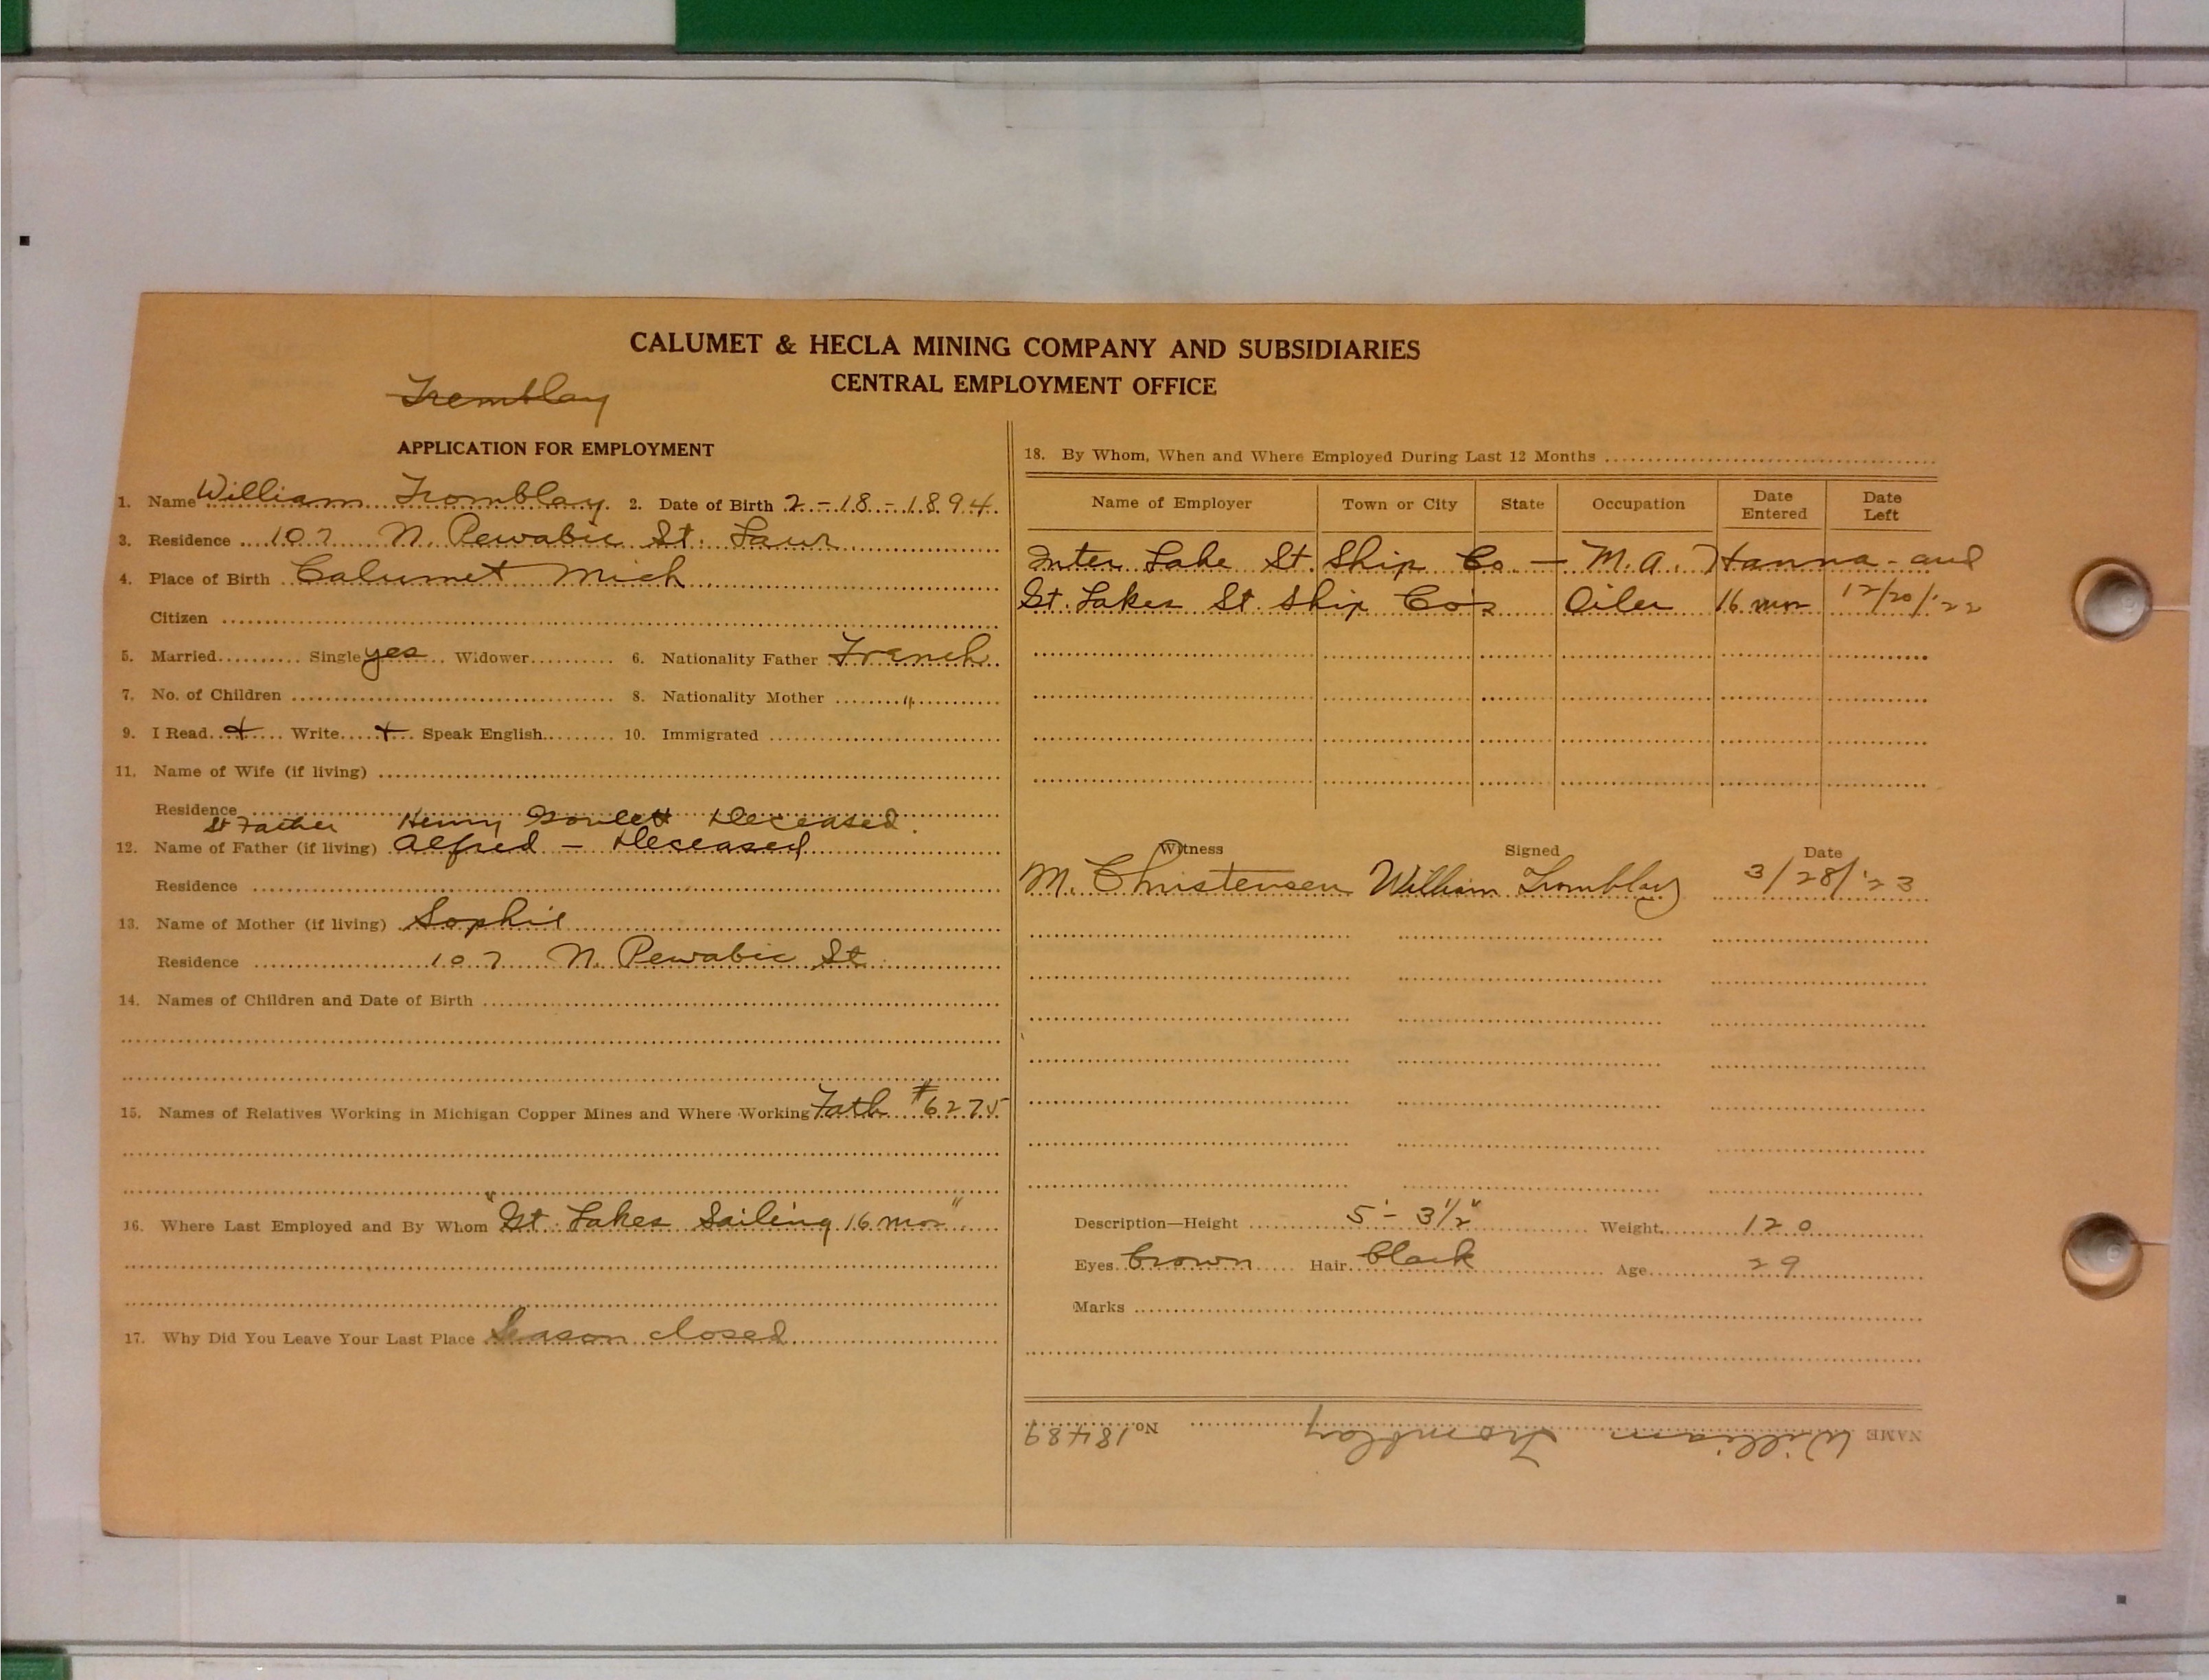 CALUMET & HECLA MINING COMPANY AND SUBSIDIARIES
CENTRAL EMPLOYMENT OFFICE
Tremblay
APPLICATION FOR EMPLOYMENT
1. Name William Tromblay. 2. Date of Birth 2-18-1894
3. Residence 107 N. Pewabic St. Laur
4. Place of Birth Calumet Mich
Citizen
5. Married Single yes Widower 6. Nationality Father French
7. No. of Children 8. Nationality Mother "
9. I Read + Write + Speak English 10. Immigrated
11. Name of Wife (if living)
Residence
St Father Henry Deceased
12. Name of Father (if living) Alfred - Deceased
Residence
13. Name of Mother (if living) Sophie
Residence 107 N. Pewabic St
14. Names of Children and Date of Birth
15. Names of Relatives Working in Michigan Copper Mines and Where Working Fath #6275
16. Where Last Employed and By Whom "Gt. Lakes Sailing 16 mos"
17. Why Did You Leave Your Last Place Season closed
18. By Whom, When and Where Employed During Last 12 Months
Name of Employer Town or City State Occupation Date Entered Date Left
Inter Lake St. Ship Co. - M.A. Hanna - and
Gt. Lakes St. Ship Co's Oiler 16 mos 12/20/'22
Witness Signed Date
M. Christensen William Tromblay 3/28/'23
Description—Height 5'-3½" Weight 120
Eyes brown Hair black Age 29
Marks
NAME William Tromblay No. 18489